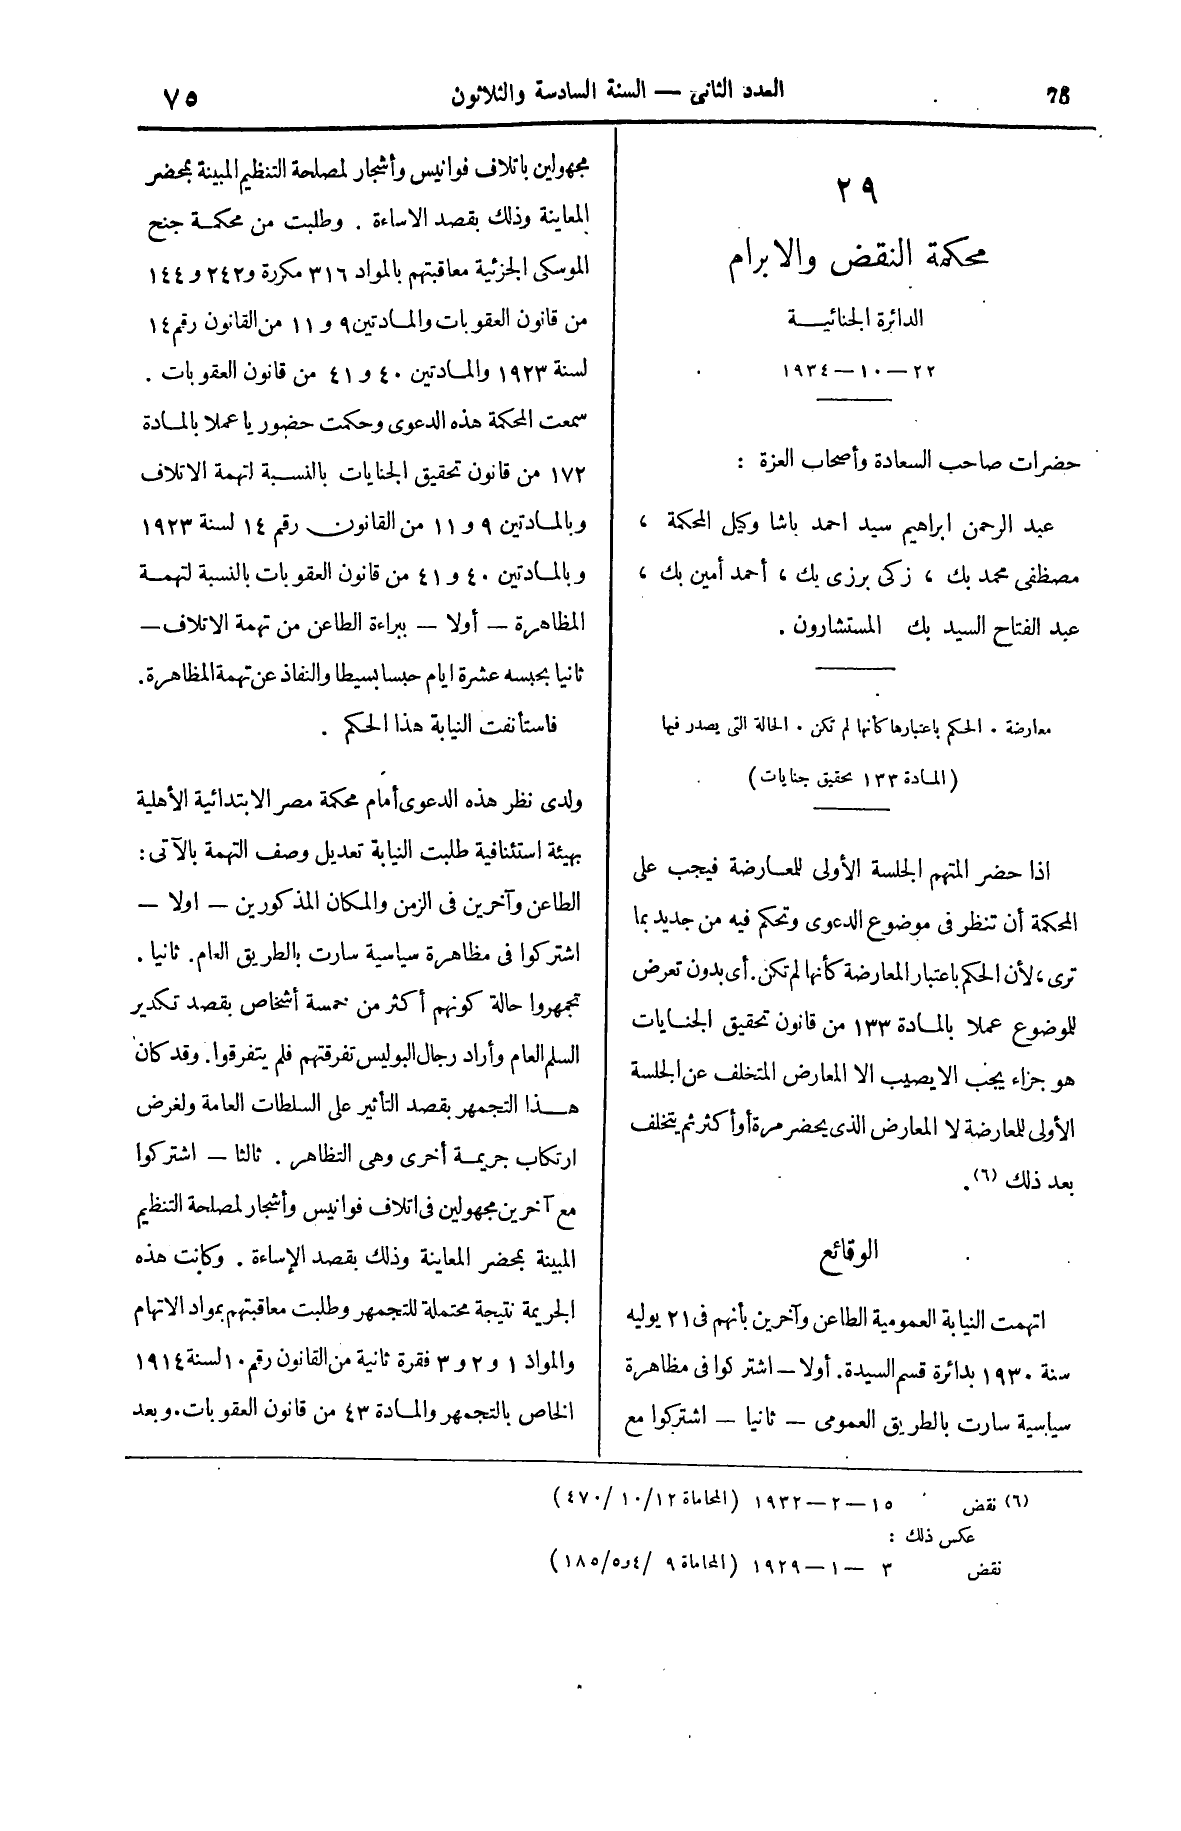 75
العدد الثانى — السنة السادسة والثلاثون
٧٥
٢٩
محكمة النقض والابرام
الدائرة الجنائيـــة
٢٢ — ١٠ — ١٩٣٤
حضرات صاحب السعادة وأصحاب العزة :
عبد الرحمن ابراهيم سيد احمد باشا وكيل المحكمة ،
مصطفى محمد بك ، زكى برزى بك ، أحمد أمين بك ،
عبد الفتاح السيد بك المستشارون .
معارضة . الحكم باعتبارها كأنها لم تكن . الحالة التى يصدر فيها
(المـادة ١٣٣ تحقيق جنايات)
اذا حضر المتهم الجلسة الأولى للمعـارضة فيجب على
المحكمة أن تنظر فى موضوع الدعوى وتحكم فيه من جديد بما
ترى، لأن الحكم باعتبار المعارضة كأنها لم تكن. أى بدون تعرض
للموضوع عملا بالمـادة ١٣٣ من قانون تحقيق الجنـايات
هو جزاء يجب الا يصيب الا المعارض المتخلف عن الجلسة
الأولى للمعارضة لا المعارض الذى يحضر مرة أو أكثر ثم يتخلف
بعد ذلك (٦).
الوقائع
اتهمت النيابة العمومية الطاعن وآخرين بأنهم فى ٢١ يوليه
سنة ١٩٣٠ بدائرة قسم السيدة. أولا — اشتركوا فى مظاهرة
سياسية سارت بالطريق العمومى — ثانيا — اشتركوا مع
مجهولين باتلاف فوانيس وأشجار لمصلحة التنظيم المبينة بمحضر
المعاينة وذلك بقصد الاساءة . وطلبت من محكمـة جنح
الموسكى الجزئية معاقبتهم بالمواد ٣١٦ مكررة و٢٤٢ و ١٤٤
من قانون العقوبات والمـادتين ٩ و ١١ من القانون رقم ١٤
لسنة ١٩٢٣ والمـادتين ٤٠ و ٤١ من قانون العقوبات .
سمعت المحكمة هذه الدعوى وحكمت حضوريا عملا بالمـادة
١٧٢ من قانون تحقيق الجنايات بالنسبة لتهمة الاتلاف
وبالمـادتين ٩ و ١١ من القانون رقم ١٤ لسنة ١٩٢٣
وبالمـادتين ٤٠ و ٤١ من قانون العقوبات بالنسبة لتهمـة
المظاهرة — أولا — ببراءة الطاعن من تهمة الاتلاف —
ثانيا بحبسه عشرة ايام حبسا بسيطا والنفاذ عن تهمة المظاهرة.
فاستأنفت النيابة هذا الحكم .
ولدى نظر هذه الدعوى أمام محكمة مصر الابتدائية الأهلية
بهيئة استئنافية طلبت النيابة تعديل وصف التهمة بالآتى :
الطاعن وآخرين فى الزمن والمكان المذكورين — اولا —
اشتركوا فى مظاهرة سياسية سارت بالطريق العام. ثانيا .
تجمهروا حالة كونهم أكثر من خمسة أشخاص بقصد تكدير
السلم العام وأراد رجال البوليس تفرقتهم فلم يتفرقوا. وقد كان
هـــذا التجمهر بقصد التأثير على السلطات العامة ولغرض
ارتكاب جريمـة أخرى وهى التظاهر . ثالثا — اشتركوا
مع آخرين مجهولين فى اتلاف فوانيس وأشجار لمصلحة التنظيم
المبينة بمحضر المعاينة وذلك بقصد الإساءة . وكانت هذه
الجريمة نتيجة محتملة للتجمهر وطلبت معاقبتهم بمواد الاتهام
والمواد ١ و ٢ و ٣ فقرة ثانية من القانون رقم ١٠ لسنة ١٩١٤
الخاص بالتجمهر والمـادة ٤٣ من قانون العقوبات. وبعد
(٦) نقض ١٥ — ٢ — ١٩٣٢ (المحاماة ١٢/١٠/٤٧٠)
عكس ذلك :
نقض ٣ — ١ — ١٩٢٩ (المحاماة ٩ /٤و٥/١٨٥)